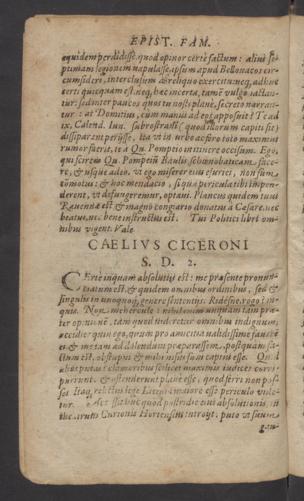 EPIST. FAM.
equidem perdidisse, quod opinor certè factum: alius se-
ptimam legionem vapulasse, ipsum apud Bellouacos cir-
cumsideri, interclusum ab reliquo exercitu: neq, adhuc
certi quicquam est. neq, hæc incerta, tamen vulgo iactan-
tur: sed inter paucos, quos tu nosti, palàm secreto narran-
tur: at Domitius, cum manus ad os apposuit! Te ad
ix. Calend. Iun. subrostrani (quod illorum capiti sit)
dissiparant perijsse, ita vt in vrbe ac foro toto maximus
rumor fuerit, te à Qu. Pompeio in itinere occisum. Ego,
qui scirem Qu. Pompeiũ Baulis face-
re, & vsque adeò, vt ego misererer eius esurire, non sum
cõmotus: & hoc mendacio, si qua pericula tibi impen-
derent, vt defungeremur, optaui. Plancus quidem tuus
Rauennæ est & magno congiario donatus à Cæsare, nec
beatus, nec bene instructus est. Tui Politici libri om-
nibus vigent. Vale
CAELIVS CICERONI
S. D. 2.
CErtè inquam absolutus est: me præsente pronun-
tiatum est, & quidem omnibus ordinibus, sed &
singulis in vnoquoq, genere sententijs. Ride, rogo in-
quis. Non mehercule: nihil vnquam enim tam præ-
ter opinionẽ, tam quod videretur omnibus indignum,
accidit: quin ego, quum pro amicitia validissimè fauerẽ
ei & me iam ad dolendum præparassem, postquam fa-
ctum est, obstupui, & mihi visus sum captus esse. Quid
alios putas? clamoribus scilicet maximis iudices corri-
puerunt, & ostenderunt planè esse, quod ferri non pos-
set. Itaq, relictus lege Licinia maiore esse periculo vide-
tur. Accessit huc, quod postridie eius absolutionis, in
theatrum Curionis Hortensius introijt, puto vt suum
gau-